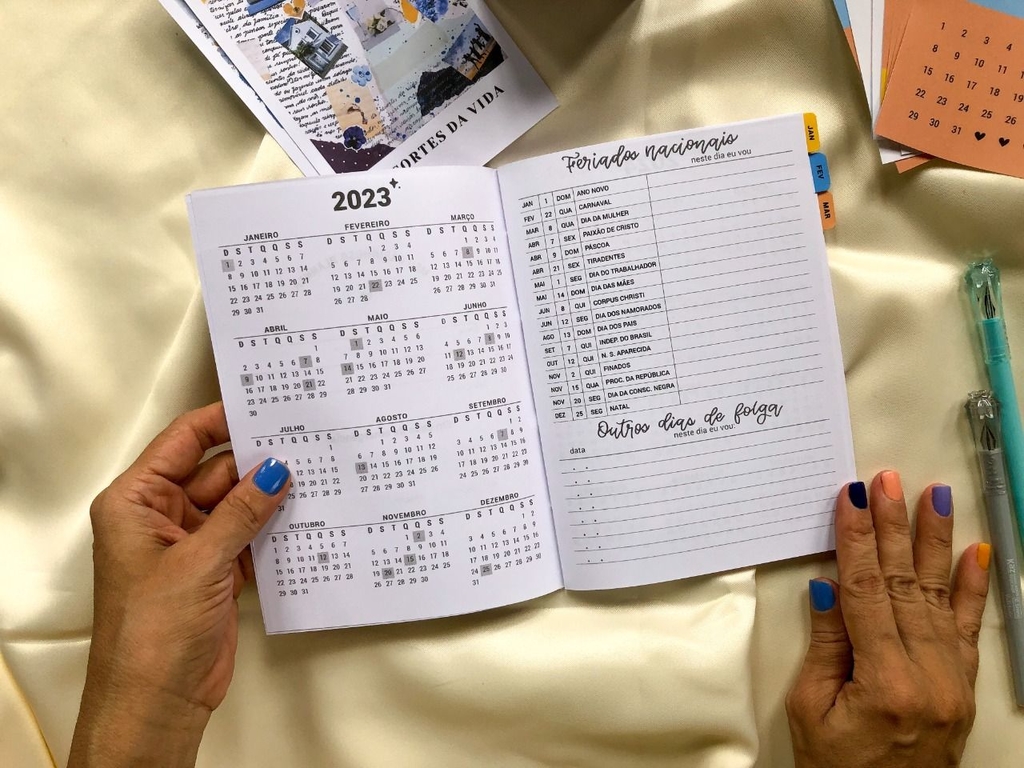 CORTES DA VIDA
1 2 3 4
8 9 10 11
15 16 17 18 19
22 23 24 25 26
29 30 31
2023
JANEIRO
D S T Q Q S S
1 2 3 4 5 6 7
8 9 10 11 12 13 14
15 16 17 18 19 20 21
22 23 24 25 26 27 28
29 30 31
FEVEREIRO
D S T Q Q S S
1 2 3 4
5 6 7 8 9 10 11
12 13 14 15 16 17 18
19 20 21 22 23 24 25
26 27 28
MARÇO
D S T Q Q S S
1 2 3 4
5 6 7 8 9 10 11
12 13 14 15 16 17 18
19 20 21 22 23 24 25
26 27 28 29 30 31
ABRIL
D S T Q Q S S
1
2 3 4 5 6 7 8
9 10 11 12 13 14 15
16 17 18 19 20 21 22
23 24 25 26 27 28 29
30
MAIO
D S T Q Q S S
1 2 3 4 5 6
7 8 9 10 11 12 13
14 15 16 17 18 19 20
21 22 23 24 25 26 27
28 29 30 31
JUNHO
D S T Q Q S S
1 2 3
4 5 6 7 8 9 10
11 12 13 14 15 16 17
18 19 20 21 22 23 24
25 26 27 28 29 30
JULHO
D S T Q Q S S
1
5 6 7 8
12 13 14 15
19 20 21 22
26 27 28 29
AGOSTO
D S T Q Q S S
1 2 3 4 5
6 7 8 9 10 11 12
13 14 15 16 17 18 19
20 21 22 23 24 25 26
27 28 29 30 31
SETEMBRO
D S T Q Q S S
1 2
3 4 5 6 7 8 9
10 11 12 13 14 15 16
17 18 19 20 21 22 23
24 25 26 27 28 29 30
OUTUBRO
D S T Q Q S S
1 2 3 4 5 6 7
8 9 10 11 12 13 14
15 16 17 18 19 20 21
22 23 24 25 26 27 28
29 30 31
NOVEMBRO
D S T Q Q S S
1 2 3 4
5 6 7 8 9 10 11
12 13 14 15 16 17 18
19 20 21 22 23 24 25
26 27 28 29 30
DEZEMBRO
D S T Q Q S S
1 2
3 4 5 6 7 8 9
10 11 12 13 14 15 16
17 18 19 20 21 22 23
24 25 26 27 28 29 30
31
Feriados nacionais
neste dia eu vou
JAN 1 DOM ANO NOVO
FEV 22 QUA CARNAVAL
MAR 8 QUA DIA DA MULHER
ABR 7 SEX PAIXÃO DE CRISTO
ABR 9 DOM PÁSCOA
ABR 21 SEX TIRADENTES
MAI 1 SEG DIA DO TRABALHADOR
MAI 14 DOM DIA DAS MÃES
JUN 8 QUI CORPUS CHRISTI
JUN 12 SEG DIA DOS NAMORADOS
AGO 13 DOM DIA DOS PAIS
SET 7 QUI INDEP. DO BRASIL
OUT 12 QUI N. S. APARECIDA
NOV 2 QUI FINADOS
NOV 15 QUA PROC. DA REPÚBLICA
NOV 20 SEG DIA DA CONSC. NEGRA
DEZ 25 SEG NATAL
Outros dias de folga
neste dia eu vou:
data
JAN
FEV
MAR